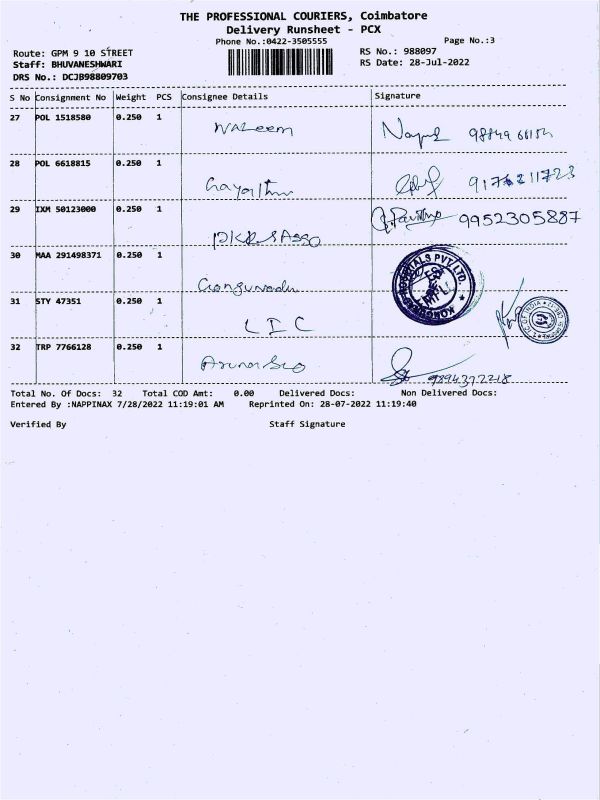 THE PROFESSIONAL COURIERS, Coimbatore
Delivery Runsheet - PCX
Phone No.:0422-3505555 Page No.:3
Route: GPM 9 10 STREET RS No.: 988097
Staff: BHUVANESHWARI RS Date: 28-Jul-2022
DRS No.: DCJB98809703
S No Consignment No Weight PCS Consignee Details Signature
27 POL 1518580 0.250 1
Waleem
28 POL 6618815 0.250 1
29 IXM 50123000 0.250 1
9952305887
30 MAA 291498371 0.250 1
31 STY 47351 0.250 1
LIC
32 TRP 7766128 0.250 1
9894372218
Total No. Of Docs: 32 Total COD Amt: 0.00 Delivered Docs: Non Delivered Docs:
Entered By :NAPPINAX 7/28/2022 11:19:01 AM Reprinted On: 28-07-2022 11:19:40
Verified By Staff Signature